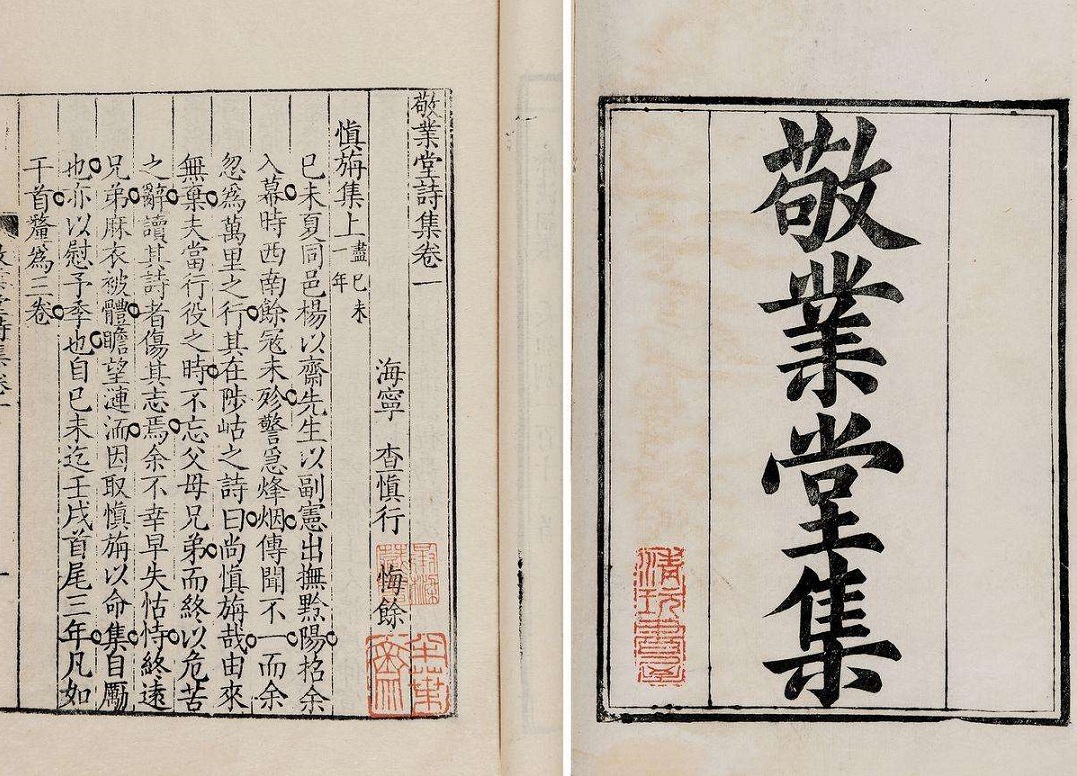 敬業堂詩集卷一
海寧 查慎行 悔餘
慎旃集上 盡一年 己未
己未夏同邑楊以齋先生以副憲出撫黔陽招余
入幕時西南餘寇未殄警急烽烟傳聞不一而余
忽爲萬里之行其在陟岵之詩曰尚慎旃哉由來
無棄夫當行役之時不忘父母兄弟而終以危苦
之辭讀其詩者傷其志焉余不幸早失怙恃終遠
兄弟麻衣被體瞻望漣洏因取慎旃以命集自勵
也亦以慰予季也自己未迄壬戌首尾三年凡如
干首釐爲三卷
敬業堂集
清玩書堂